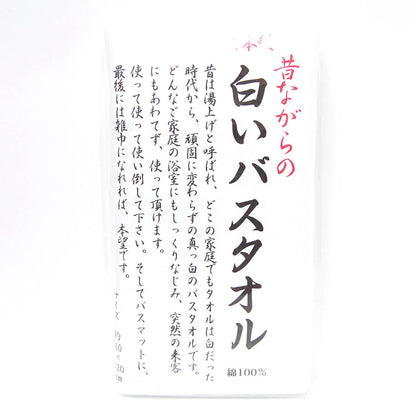 昔ながらの
白いバスタオル
綿100%
昔は湯上げと呼ばれ、どこの家庭でもタオルは白だった
時代から、頑固に変わらずの真っ白のバスタオルです。
どんなご家庭の浴室にもしっくりなじみ、突然の来客
にもあわてず、使って頂けます。
使って使って使い倒して下さい。そしてバスマットに、
最後には雑巾になれれば、本望です。
サイズ 約60×120cm